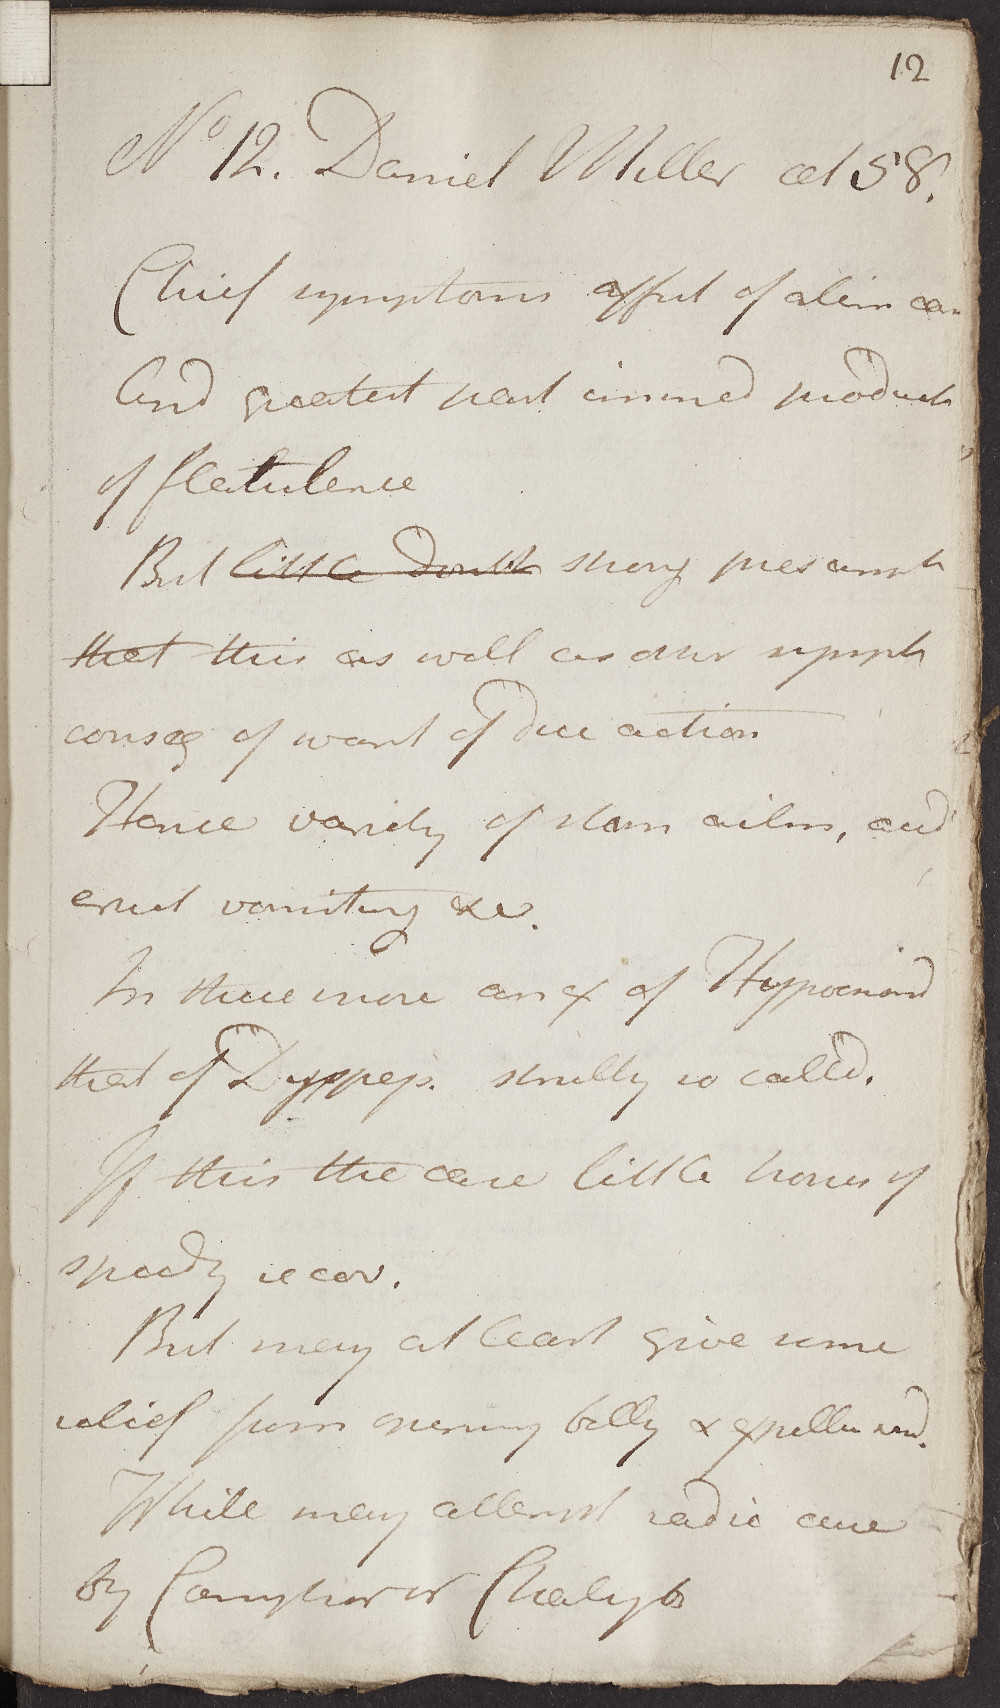 12
No 12. Daniel Miller aet 58.
Chief symptoms affect of alim can
And greatest part immed product
of flatulence
But little doubt strong presumpt
that this as well as other sympt
conseq of want of due action
Hence variety of stom ailm, acid
eruct vomiting &c.
In these more an ex of Hypochond
that of Dyspeps. strictly so called.
If this the case little hopes of
speedy recov.
But may at least give some
relief from opening belly & expelling wind.
While may attempt radic cure
by Camphor or Chalyb